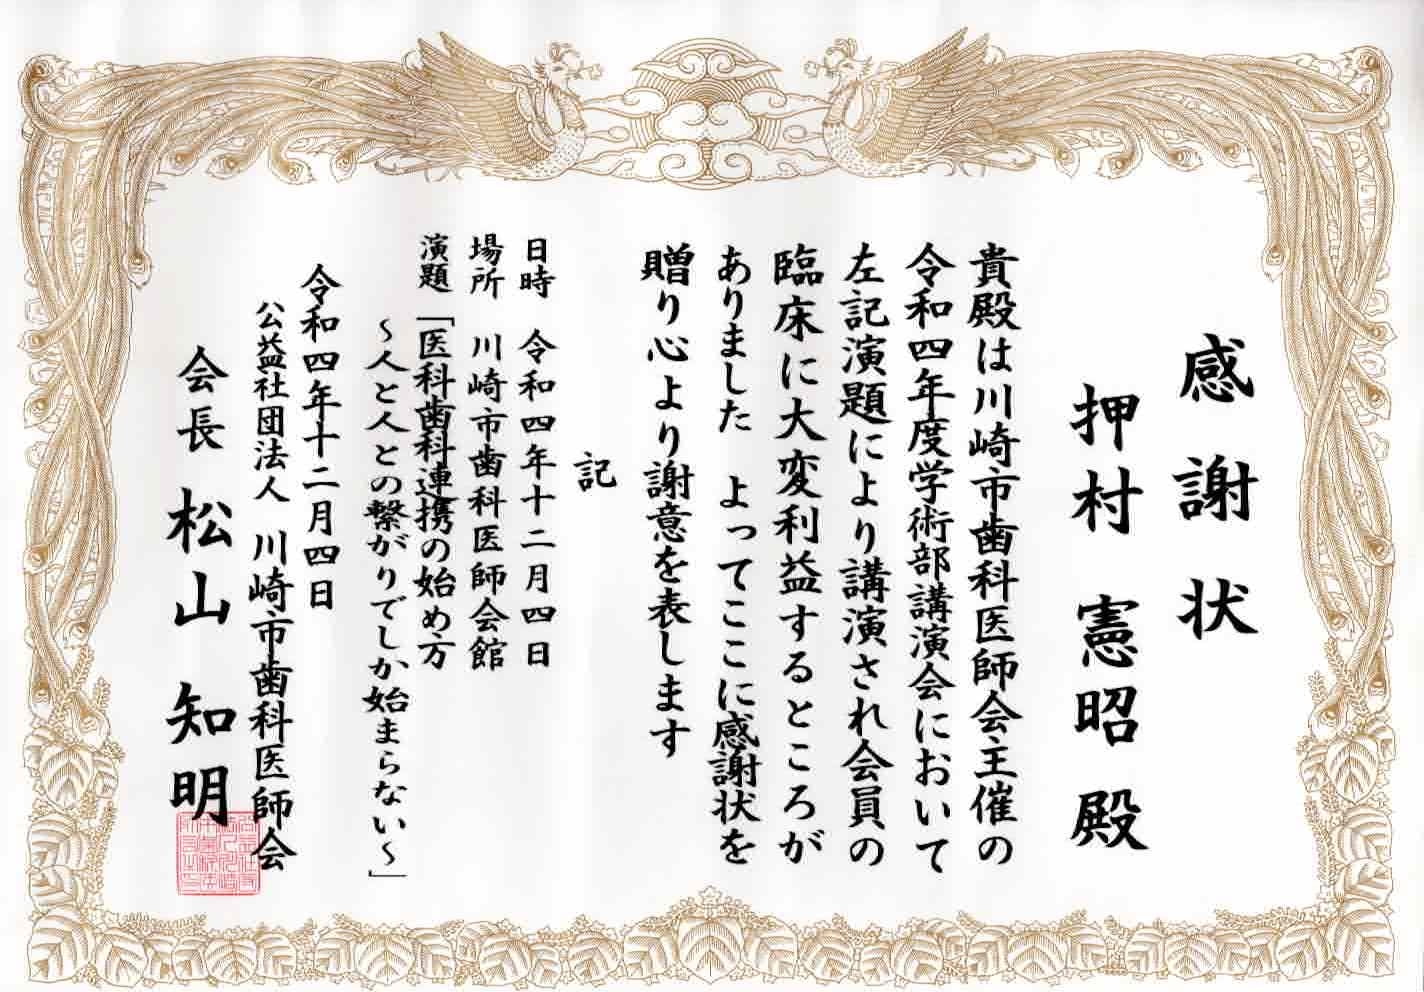 感謝状
押村 憲昭 殿
貴殿は川崎市歯科医師会主催の
令和四年度学術部講演会において
左記演題により講演され会員の
臨床に大変利益するところが
ありました よってここに感謝状を
贈り心より謝意を表します
記
日時 令和四年十二月四日
場所 川崎市歯科医師会館
演題 「医科歯科連携の始め方
～人と人との繋がりでしか始まらない～」
令和四年十二月四日
公益社団法人 川崎市歯科医師会
会長 松山 知明